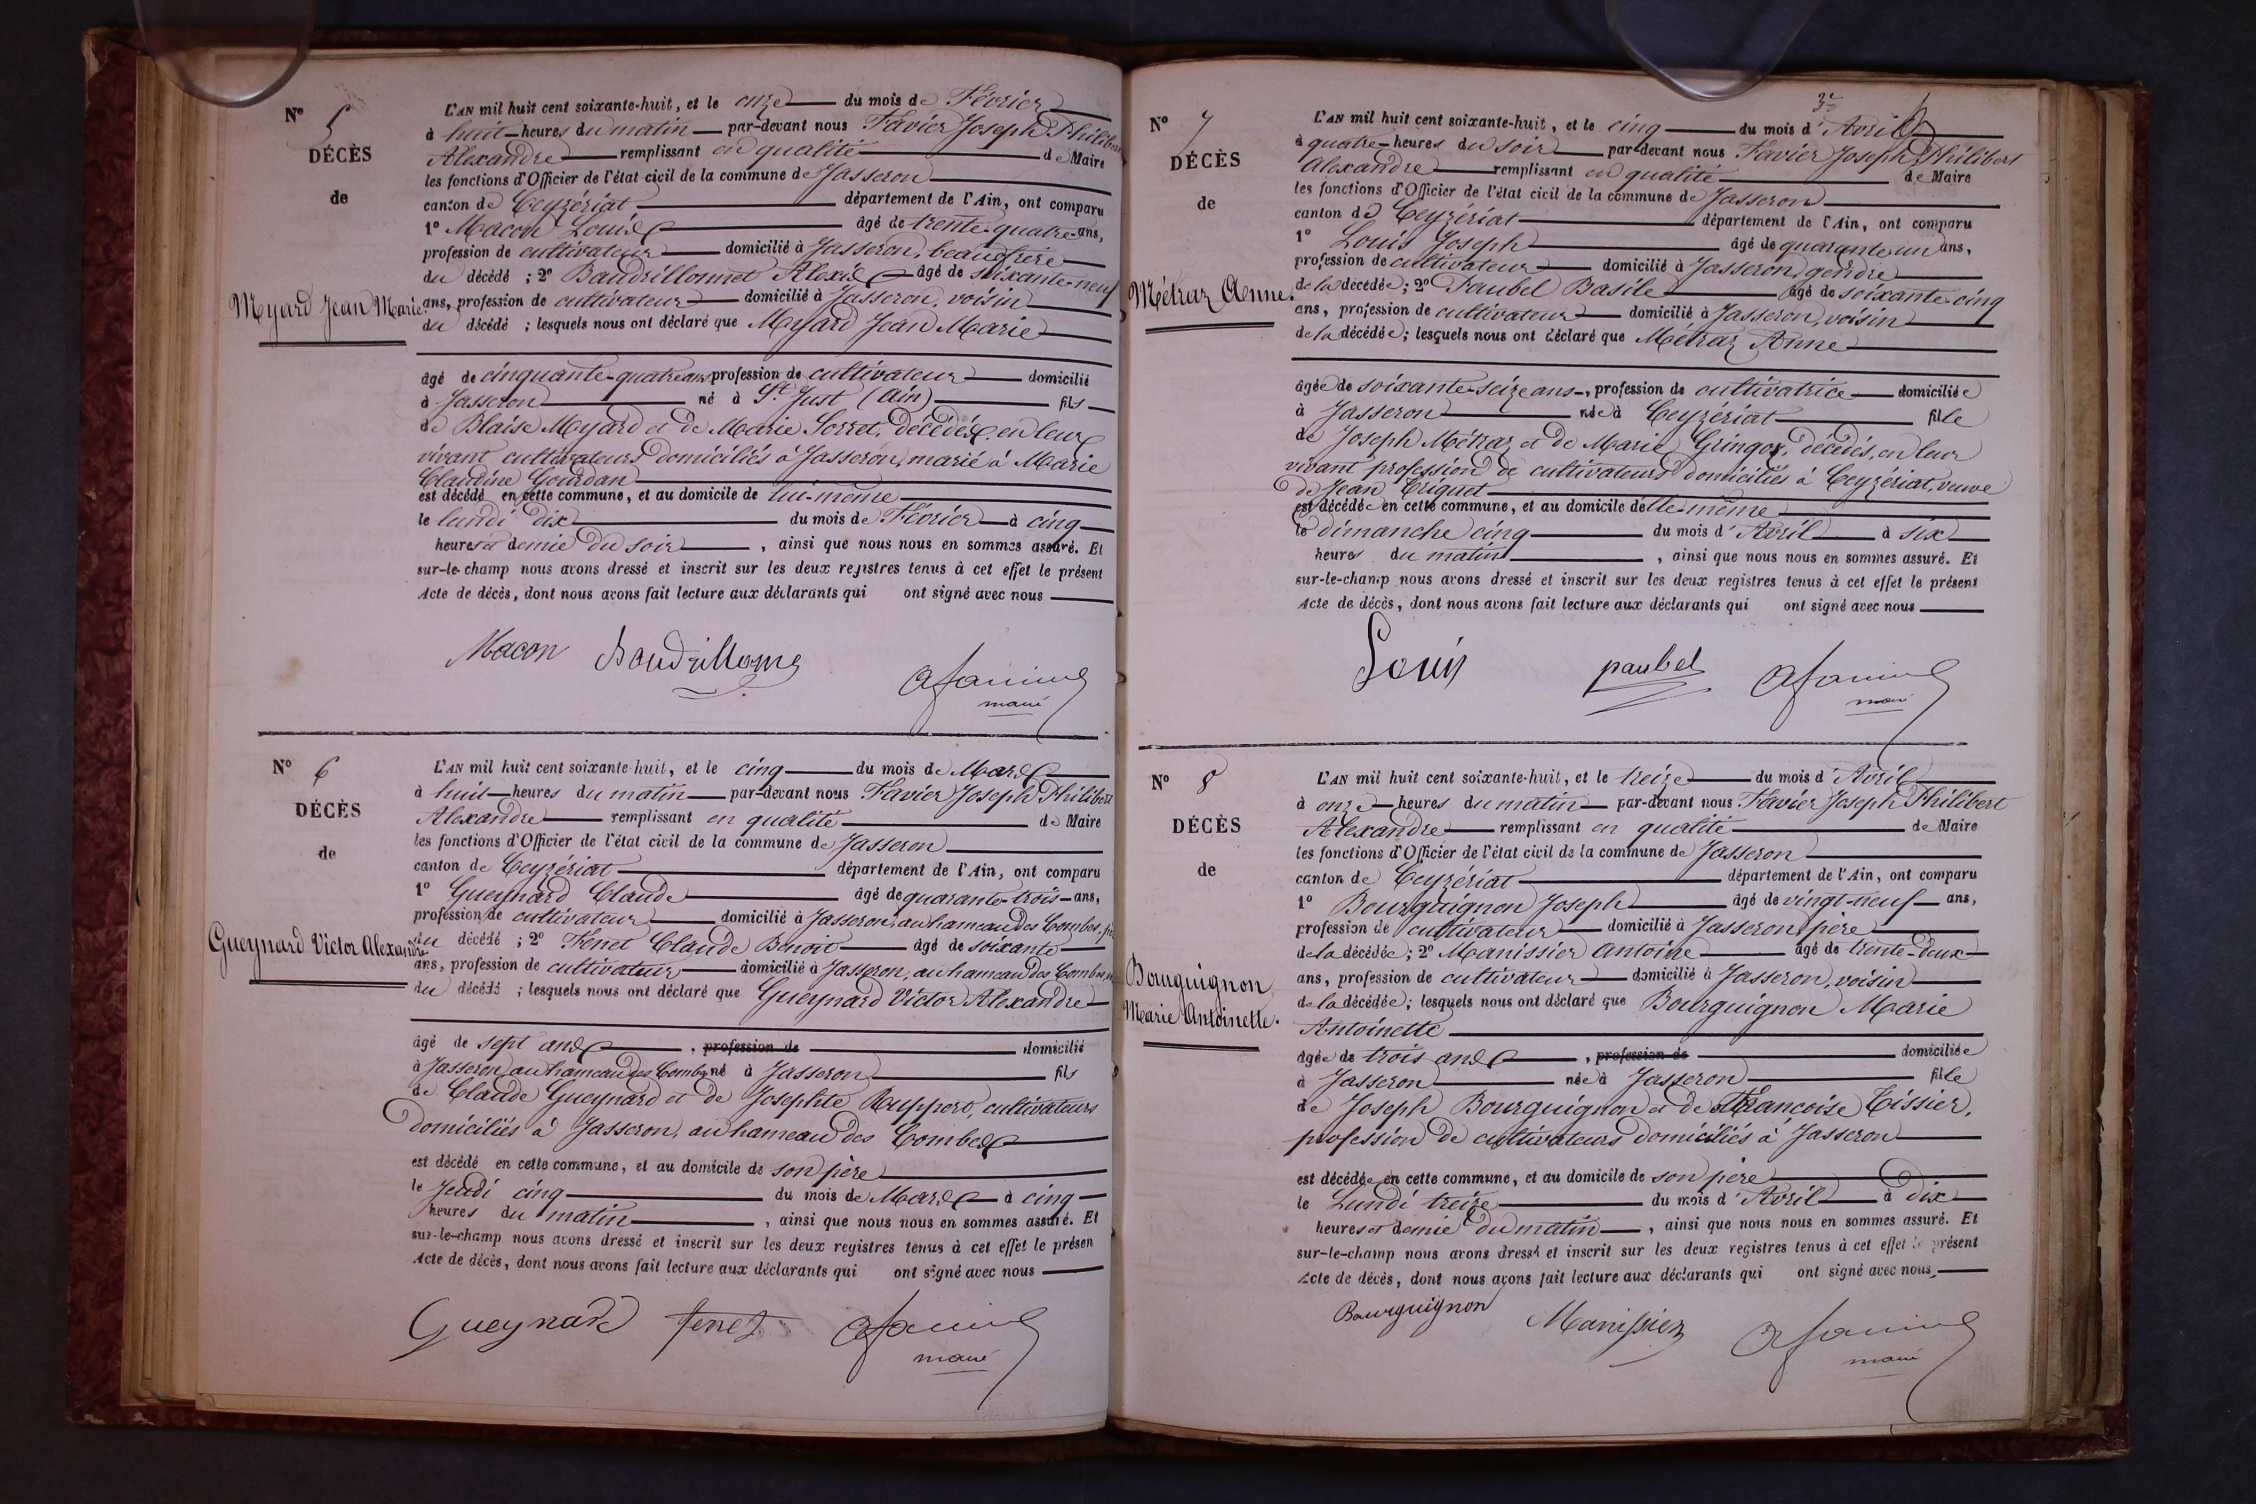 N° 5
DÉCÈS
de
Myard Jean Marie.
L'AN mil huit cent soixante-huit, et le onze du mois de Février
à huit heures du matin par-devant nous Favier Joseph Philibert
Alexandre remplissant en qualité de Maire
les fonctions d'Officier de l'état civil de la commune de Jasseron
canton de Ceyzériat département de l'Ain, ont comparu
1° Macon Louis âgé de trente-quatre ans,
profession de cultivateur domicilié à Jasseron, beaufrère
du décédé ; 2° Baudrillonnet Alexis âgé de soixante-neuf
ans, profession de cultivateur domicilié à Jasseron, voisin
du décédé ; lesquels nous ont déclaré que Myard Jean Marie
âgé de cinquante-quatre ans profession de cultivateur domicilié
à Jasseron né à St Just (Ain) fils
de Blaise Myard et de Marie Sorret, décédés, en leur
vivant cultivateurs domiciliés à Jasseron, marié à Marie
Claudine Gourdan
est décédé en cette commune, et au domicile de lui-même
le lundi dix du mois de Février à cinq
heures et demie du soir , ainsi que nous nous en sommes assuré. Et
sur-le-champ nous avons dressé et inscrit sur les deux registres tenus à cet effet le présent
Acte de décès, dont nous avons fait lecture aux déclarants qui ont signé avec nous
Macon
maire
N° 6
DÉCÈS
de
Gueynard Victor Alexandre
L'AN mil huit cent soixante-huit, et le cinq du mois de Mars
à huit heures du matin par-devant nous Favier Joseph Philibert
Alexandre remplissant en qualité de Maire
les fonctions d'Officier de l'état civil de la commune de Jasseron
canton de Ceyzériat département de l'Ain, ont comparu
1° Gueynard Claude âgé de quarante-trois ans,
profession de cultivateur domicilié à Jasseron, au hameau des Combes,
du décédé ; 2° Fenet Claude Benoit âgé de soixante
ans, profession de cultivateur domicilié à Jasseron, au hameau des Combes,
du décédé ; lesquels nous ont déclaré que Gueynard Victor Alexandre
âgé de sept ans , profession de domicilié
à Jasseron au hameau des Combes né à Jasseron fils
de Claude Gueynard et de Josephte Ruppert, cultivateurs
domiciliés à Jasseron, au hameau des Combes
est décédé en cette commune, et au domicile de son père
le Jeudi cinq du mois de Mars à cinq
heures du matin , ainsi que nous nous en sommes assuré. Et
sur-le-champ nous avons dressé et inscrit sur les deux registres tenus à cet effet le présen
Acte de décès, dont nous avons fait lecture aux déclarants qui ont signé avec nous
Gueynard fenet
maire
3e
N° 7
DÉCÈS
de
Métraz Anne.
L'AN mil huit cent soixante-huit, et le cinq du mois d'Avril
à quatre heures du soir par-devant nous Favier Joseph Philibert
Alexandre remplissant en qualité de Maire
les fonctions d'Officier de l'état civil de la commune de Jasseron
canton de Ceyzériat département de l'Ain, ont comparu
1° Louis Joseph âgé de quarante-un ans,
profession de cultivateur domicilié à Jasseron, gendre
de la décédée ; 2° Paubel Basile âgé de soixante-cinq
ans, profession de cultivateur domicilié à Jasseron, voisin
de la décédée ; lesquels nous ont déclaré que Métraz Anne
âgée de soixante-seize ans , profession de cultivatrice domiciliée
à Jasseron née à Ceyzériat fille
de Joseph Métraz et de Marie Gringoz, décédés, en leur
vivant profession de cultivateurs domiciliés à Ceyzériat, veuve
de Jean Criquet
est décédée en cette commune, et au domicile d'elle-même
le dimanche cinq du mois d'Avril à six
heures du matin , ainsi que nous nous en sommes assuré. Et
sur-le-champ nous avons dressé et inscrit sur les deux registres tenus à cet effet le présent
Acte de décès, dont nous avons fait lecture aux déclarants qui ont signé avec nous
Louis paubel
maire
N° 8
DÉCÈS
de
Bourguignon
Marie Antoinette.
L'AN mil huit cent soixante-huit, et le treize du mois d'Avril
à onze heures du matin par-devant nous Favier Joseph Philibert
Alexandre remplissant en qualité de Maire
les fonctions d'Officier de l'état civil de la commune de Jasseron
canton de Ceyzériat département de l'Ain, ont comparu
1° Bourguignon Joseph âgé de vingt-neuf ans,
profession de cultivateur domicilié à Jasseron, père
de la décédée ; 2° Manissier Antoine âgé de trente-deux
ans, profession de cultivateur domicilié à Jasseron, voisin
de la décédée ; lesquels nous ont déclaré que Bourguignon Marie
Antoinette
âgée de trois ans , profession de domiciliée
à Jasseron née à Jasseron fille
de Joseph Bourguignon et de Francoise Tissier,
profession de cultivateurs domiciliés à Jasseron
est décédée en cette commune, et au domicile de son père
le Lundi treize du mois d'Avril à dix
heures et demie du matin , ainsi que nous nous en sommes assuré. Et
sur-le-champ nous avons dressé et inscrit sur les deux registres tenus à cet effet le présent
Acte de décès, dont nous avons fait lecture aux déclarants qui ont signé avec nous
Bourguignon Manissier
maire